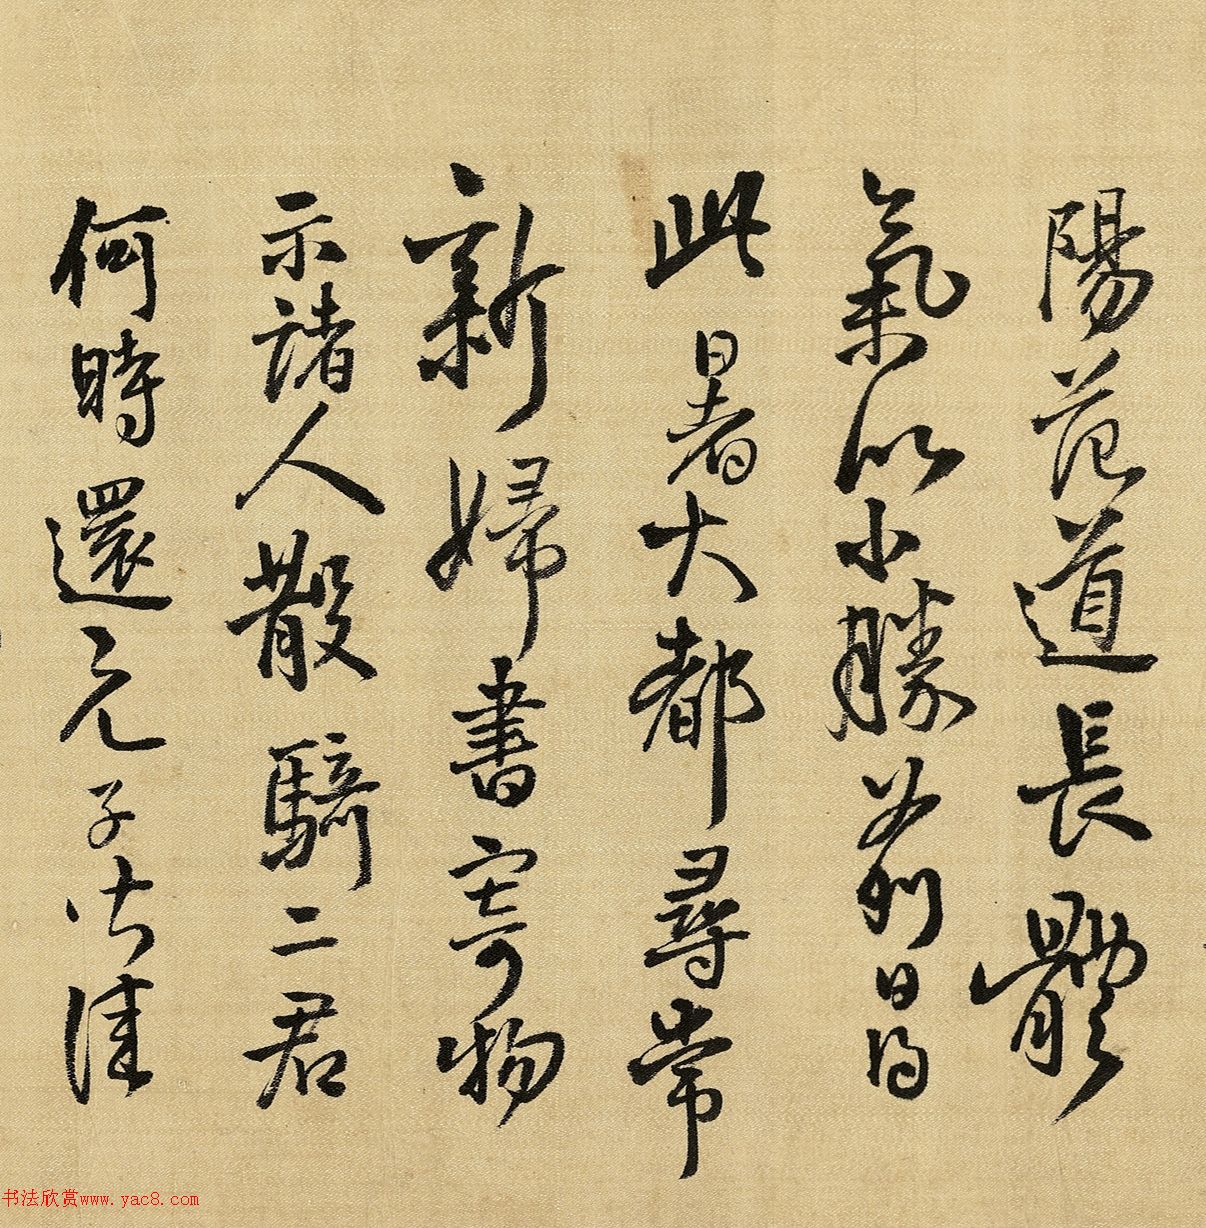 陽范道長體
氣以小勝前日得
此暑大都尋常
新婦書寄物
示諸人散騎二君
何時還元子
书法欣赏www.yac8.com